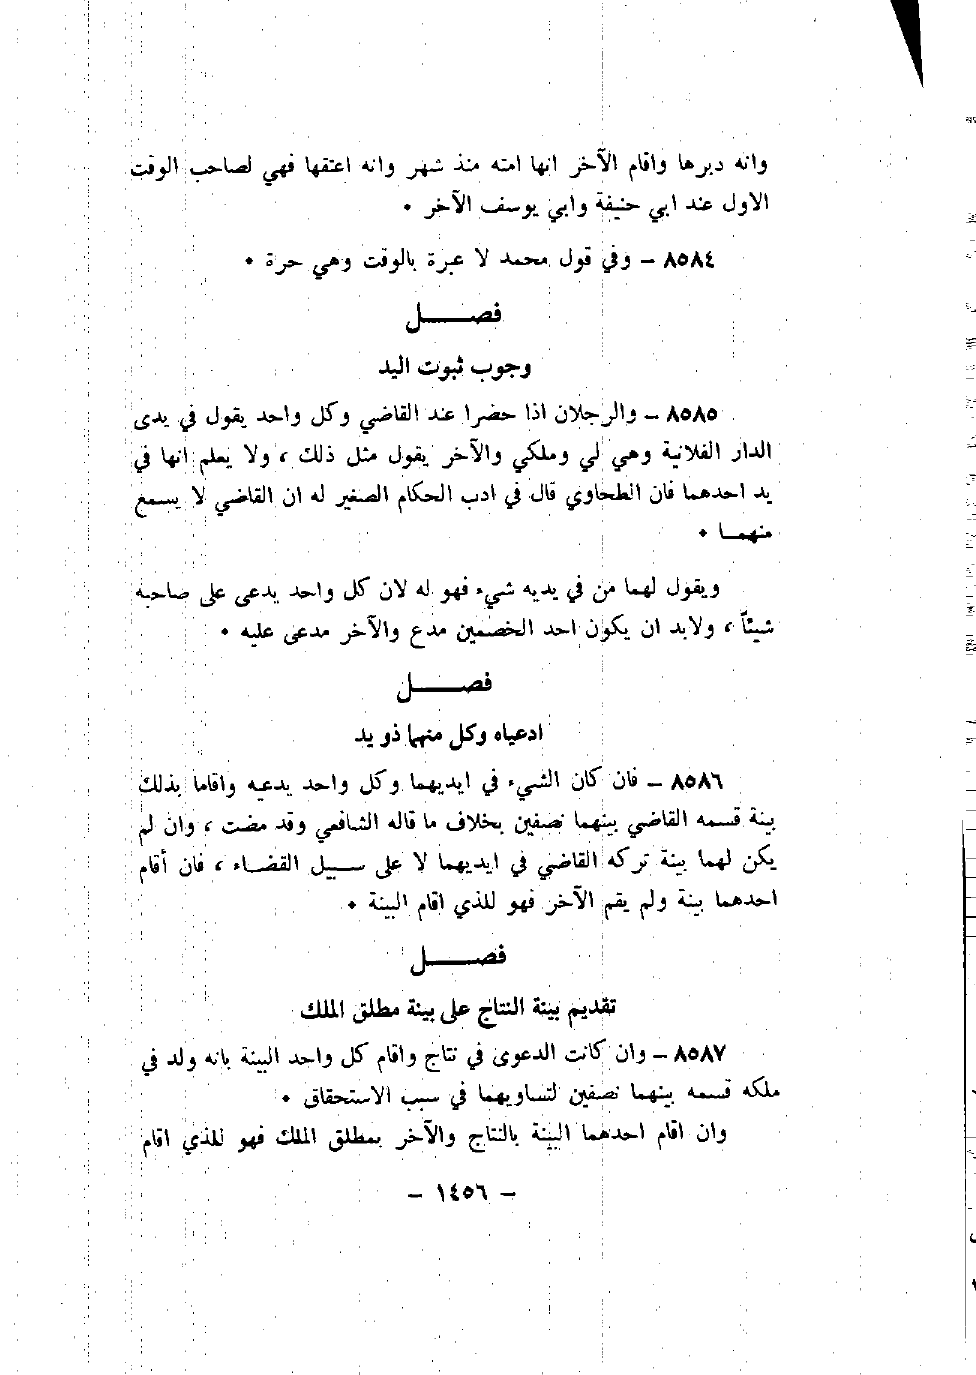 وانه دبرها واقام الآخر انها امته منذ شهر وانه اعتقها فهي لصاحب الوقت
الاول عند ابي حنيفة وابي يوسف الآخر .
٨٥٨٤ – وفي قول محمد لا عبرة بالوقت وهي حرة .
فصـــــل
وجوب ثبوت اليد
٨٥٨٥ – والرجلان اذا حضرا عند القاضي وكل واحد يقول في يدى
الدار الفلانية وهي لي وملكي والآخر يقول مثل ذلك ، ولا يعلم انها في
يد احدهما فان الطحاوي قال في ادب الحكام الصغير له ان القاضي لا يسمع
منهمـا .
ويقول لهما من في يديه شيء فهو له لان كل واحد يدعى على صاحبه
شيئاً ، ولابد ان يكون احد الخصمين مدع والآخر مدعى عليه .
فصـــــل
ادعياه وكل منهما ذو يد
٨٥٨٦ – فان كان الشيء في ايديهما وكل واحد يدعيه واقاما بذلك
بينة قسمه القاضي بينهما نصفين بخلاف ما قاله الشافعي وقد مضت ، وان لم
يكن لهما بينة تركه القاضي في ايديهما لا على سـبيل القضـاء ، فان أقام
احدهما بينة ولم يقم الآخر فهو للذي اقام البينة .
فصـــــل
تقديم بينة النتاج على بينة مطلق الملك
٨٥٨٧ – وان كانت الدعوى في نتاج واقام كل واحد البينة بانه ولد في
ملكه قسمه بينهما نصفين لتساويهما في سبب الاستحقاق .
وان اقام احدهما البينة بالنتاج والآخر بمطلق الملك فهو للذي اقام
– ١٤٥٦ –